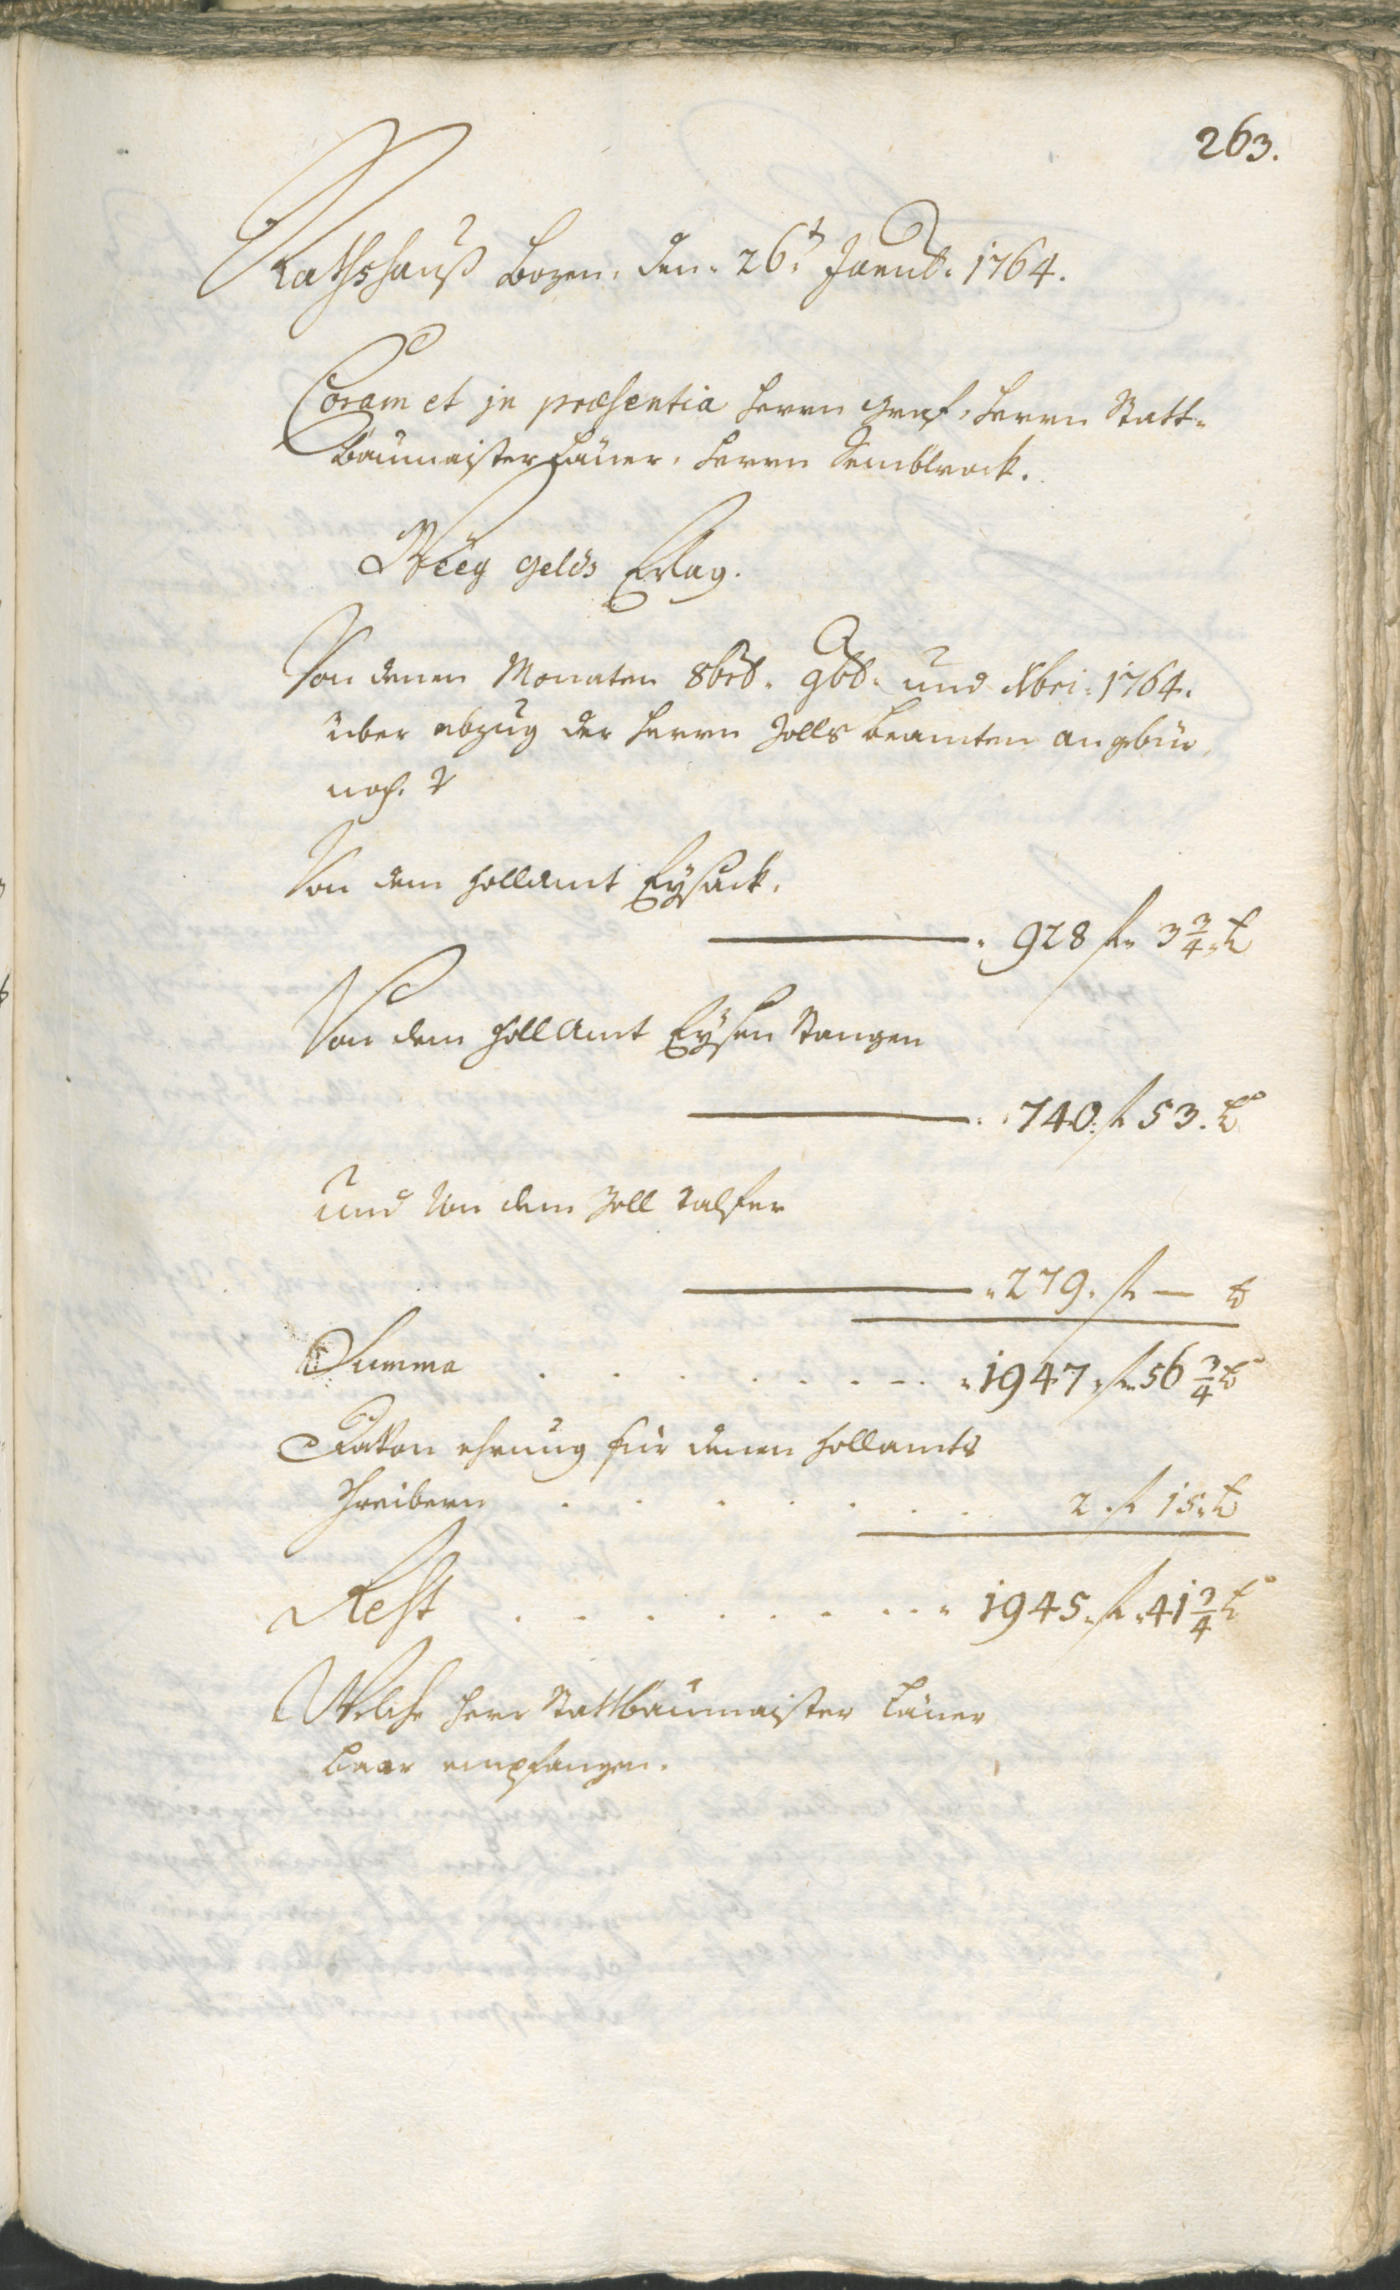 263.
Rathshauß Bozen, den 26.t Januar. 1764.
Coram et in præsentia Herrn Graf, Herrn Statt-
baumaister Laner, Herrn
Weeg Gelds Erlag.
Von denen Monaten 8bris. 9br. und Xbris. 1764.
über abzug der Herrn Zolls beamten angebür
noch.
Von dem Zollamt Eysack.
928 fl. 3 3/4 kr
Von dem Zollamt Eysen Stangen
740. fl 53. kr
und von dem Zoll Talfer
279. fl — kr
Summa . . . . . . . . 1947. fl. 56 3/4 kr
Davon ehrung für denen Zollamts
Schreibern . . . . . . 2. fl 15. kr
Rest . . . . . . . . 1945. fl. 41 3/4 kr
Welche Herr Stattbaumaister Laner
baar empfangen.